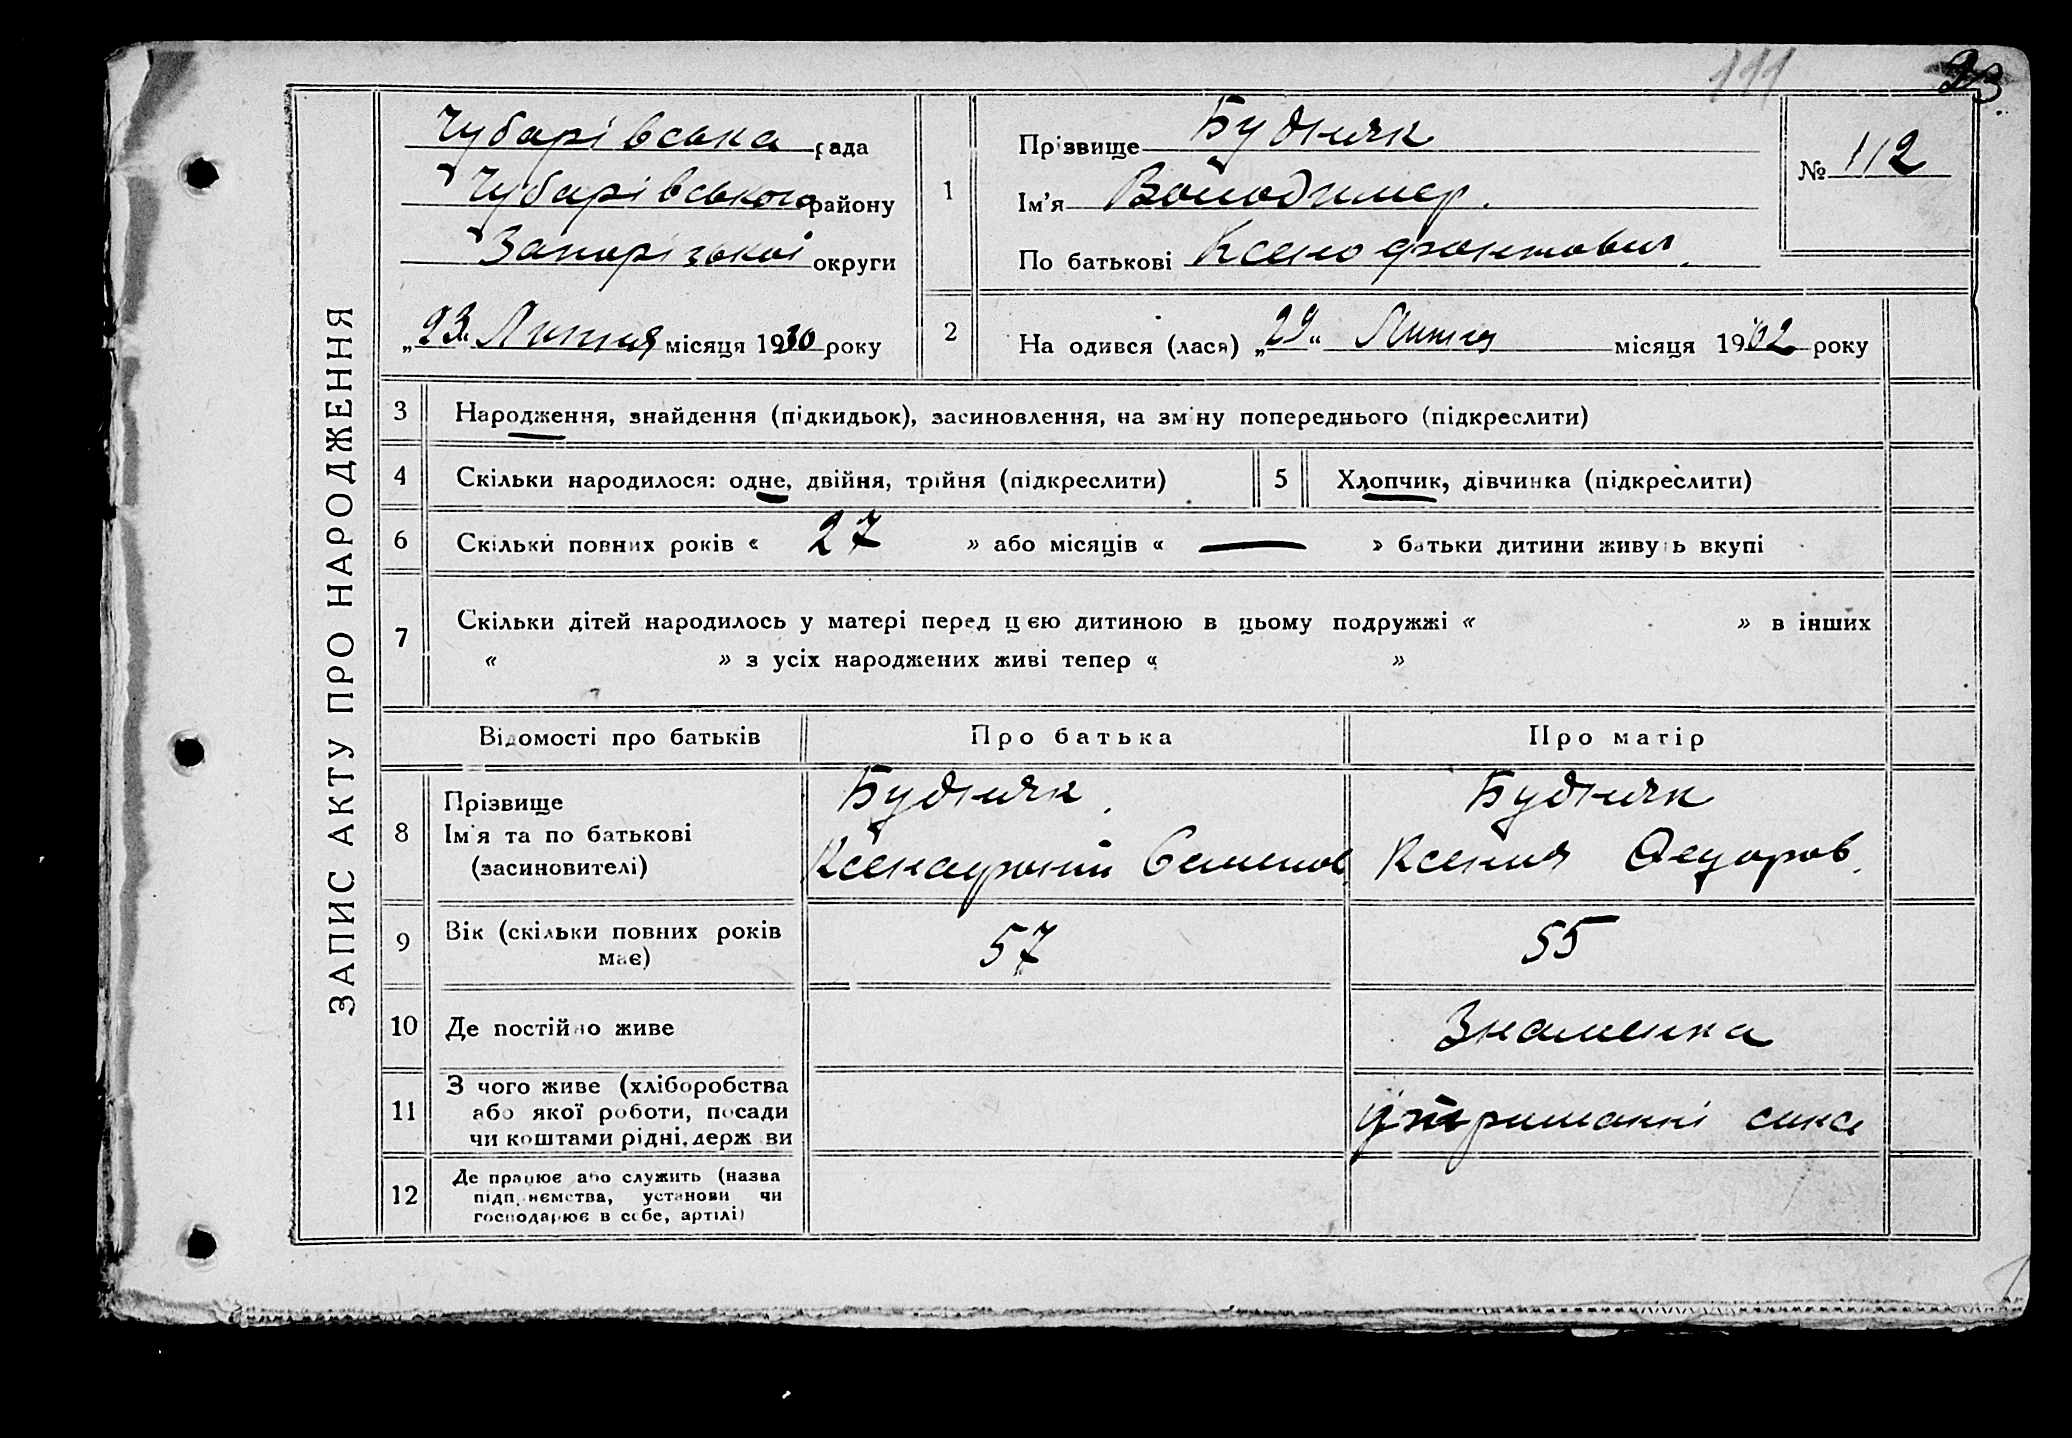 111
ЗАПИС АКТУ ПРО НАРОДЖЕННЯ
Чубарівська рада
Чубарівського району
Запорізької округи
„23“ Липня місяця 1930 року
1
Прізвище Будняк
Ім'я Володимер.
По батькові Ксенофонтович.
№ 112
2
Народився (лася) „29“ Липня місяця 1902 року
3 Народження, знайдення (підкидьок), засиновлення, на зміну попереднього (підкреслити)
4 Скільки народилося: одне, двійня, трійня (підкреслити)
5 Хлопчик, дівчинка (підкреслити)
6 Скільки повних років « 27 » або місяців « — » батьки дитини живуть вкупі
7 Скільки дітей народилось у матері перед цією дитиною в цьому подружжі « » в інших
« » з усіх народжених живі тепер « »
Відомості про батьків Про батька Про матір
8 Прізвище
Ім'я та по батькові
(засиновителі)
Будняк
Ксенофонт Семенов.
Будняк
Ксения Федоров.
9 Вік (скільки повних років
має)
57
55
10 Де постійно живе
Знаменка
11 З чого живе (хліборобства
або якої роботи, посади
чи коштами рідні, держави
утриманні сина
12 Де працює або служить (назва
підприємства, установи чи
господарює в себе, артілі)